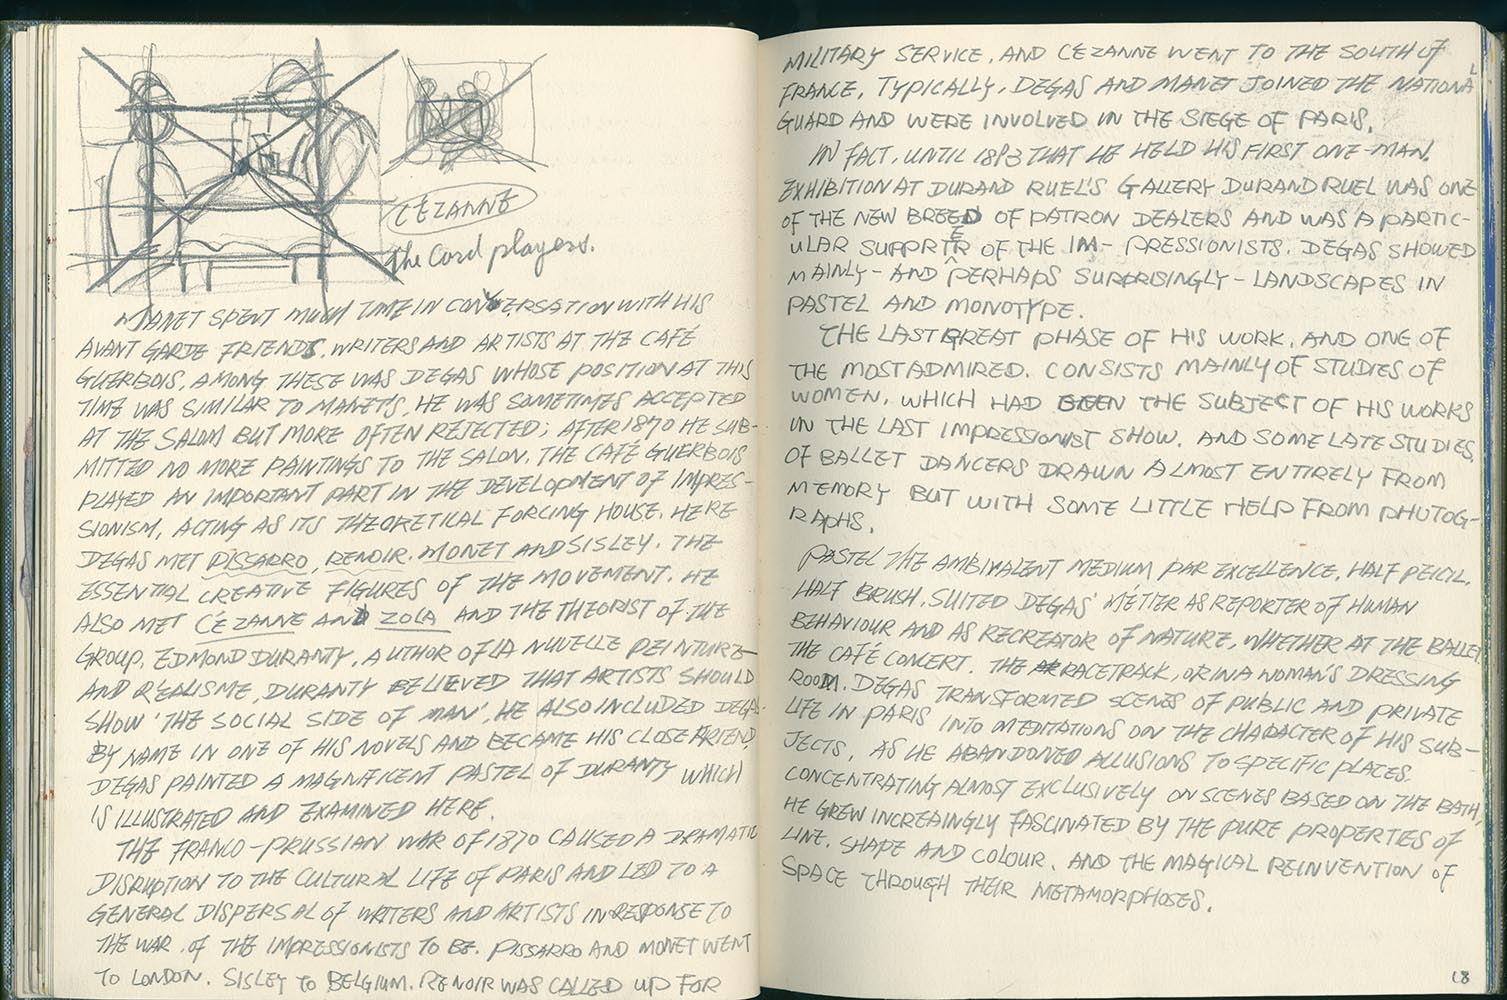 CÉZANNE
The Card players.
MANET SPENT MUCH TIME IN CONVERSATION WITH HIS
AVANT GARDE FRIENDS, WRITERS AND ARTISTS AT THE CAFÉ
GUERBOIS. AMONG THESE WAS DEGAS WHOSE POSITION AT THIS
TIME WAS SIMILAR TO MANET'S. HE WAS SOMETIMES ACCEPTED
AT THE SALON BUT MORE OFTEN REJECTED; AFTER 1870 HE SUB-
MITTED NO MORE PAINTINGS TO THE SALON. THE CAFÉ GUERBOIS
PLAYED AN IMPORTANT PART IN THE DEVELOPMENT OF IMPRES-
SIONISM, ACTING AS ITS THEORETICAL FORCING HOUSE. HERE
DEGAS MET PISSARRO, RENOIR. MONET AND SISLEY. THE
ESSENTIAL CREATIVE FIGURES OF THE MOVEMENT. HE
ALSO MET CÉZANNE AND ZOLA AND THE THEORIST OF THE
GROUP, EDMOND DURANTY, AUTHOR OF LA NUVELLE PEINTURE
AND RÉALISME, DURANTY BELIEVED THAT ARTISTS SHOULD
SHOW 'THE SOCIAL SIDE OF MAN', HE ALSO INCLUDED DEGAS
BY NAME IN ONE OF HIS NOVELS AND BECAME HIS CLOSE FRIEND,
DEGAS PAINTED A MAGNIFICENT PASTEL OF DURANTY WHICH
IS ILLUSTRATED AND EXAMINED HERE.
THE FRANCO-PRUSSIAN WAR OF 1870 CAUSED A DRAMATIC
DISRUPTION TO THE CULTURAL LIFE OF PARIS AND LED TO A
GENERAL DISPERSAL OF WRITERS AND ARTISTS IN RESPONSE TO
THE WAR. OF THE IMPRESSIONISTS TO BE. PISSARRO AND MONET WENT
TO LONDON. SISLEY TO BELGIUM. RENOIR WAS CALLED UP FOR
MILITARY SERVICE, AND CÉZANNE WENT TO THE SOUTH OF
FRANCE, TYPICALLY, DEGAS AND MANET JOINED THE NATIONAL
GUARD AND WERE INVOLVED IN THE SIEGE OF PARIS.
IN FACT, UNTIL 1893 THAT HE HELD HIS FIRST ONE-MAN.
EXHIBITION AT DURAND RUEL'S GALLERY DURAND RUEL WAS ONE
OF THE NEW BREED OF PATRON DEALERS AND WAS A PARTIC-
ULAR SUPPRTER OF THE IM-PRESSIONISTS. DEGAS SHOWED
MAINLY - AND PERHAPS SURPRISINGLY - LANDSCAPES IN
PASTEL AND MONOTYPE.
THE LAST GREAT PHASE OF HIS WORK, AND ONE OF
THE MOST ADMIRED. CONSISTS MAINLY OF STUDIES OF
WOMEN, WHICH HAD BEEN THE SUBJECT OF HIS WORKS
IN THE LAST IMPRESSIONIST SHOW. AND SOME LATE STUDIES,
OF BALLET DANCERS DRAWN ALMOST ENTIRELY FROM
MEMORY BUT WITH SOME LITTLE HELP FROM PHOTOG-
RAPHS.
PASTEL THE AMBIVALENT MEDIUM PAR EXCELLENCE, HALF PEICIL,
HALF BRUSH, SUITED DEGAS' METIER AS REPORTER OF HUMAN
BEHAVIOUR AND AS RECREATOR OF NATURE, WHETHER AT THE BALLET,
THE CAFÉ CONCERT. THE RACETRACK, OR IN A WOMAN'S DRESSING
ROOM. DEGAS TRANSFORMED SCENES OF PUBLIC AND PRIVATE
LIFE IN PARIS INTO MEDITATIONS ON THE CHARACTER OF HIS SUB-
JECTS, AS HE ABANDONED ALLUSIONS TO SPECIFIC PLACES.
CONCENTRATING ALMOST EXCLUSIVELY ON SCENES BASED ON THE BATH,
HE GREW INCREAINGLY FASCINATED BY THE PURE PROPERTIES OF
LINE, SHAPE AND COLOUR, AND THE MAGICAL REINVENTION OF
SPACE THROUGH THEIR METAMORPHOSES.
18